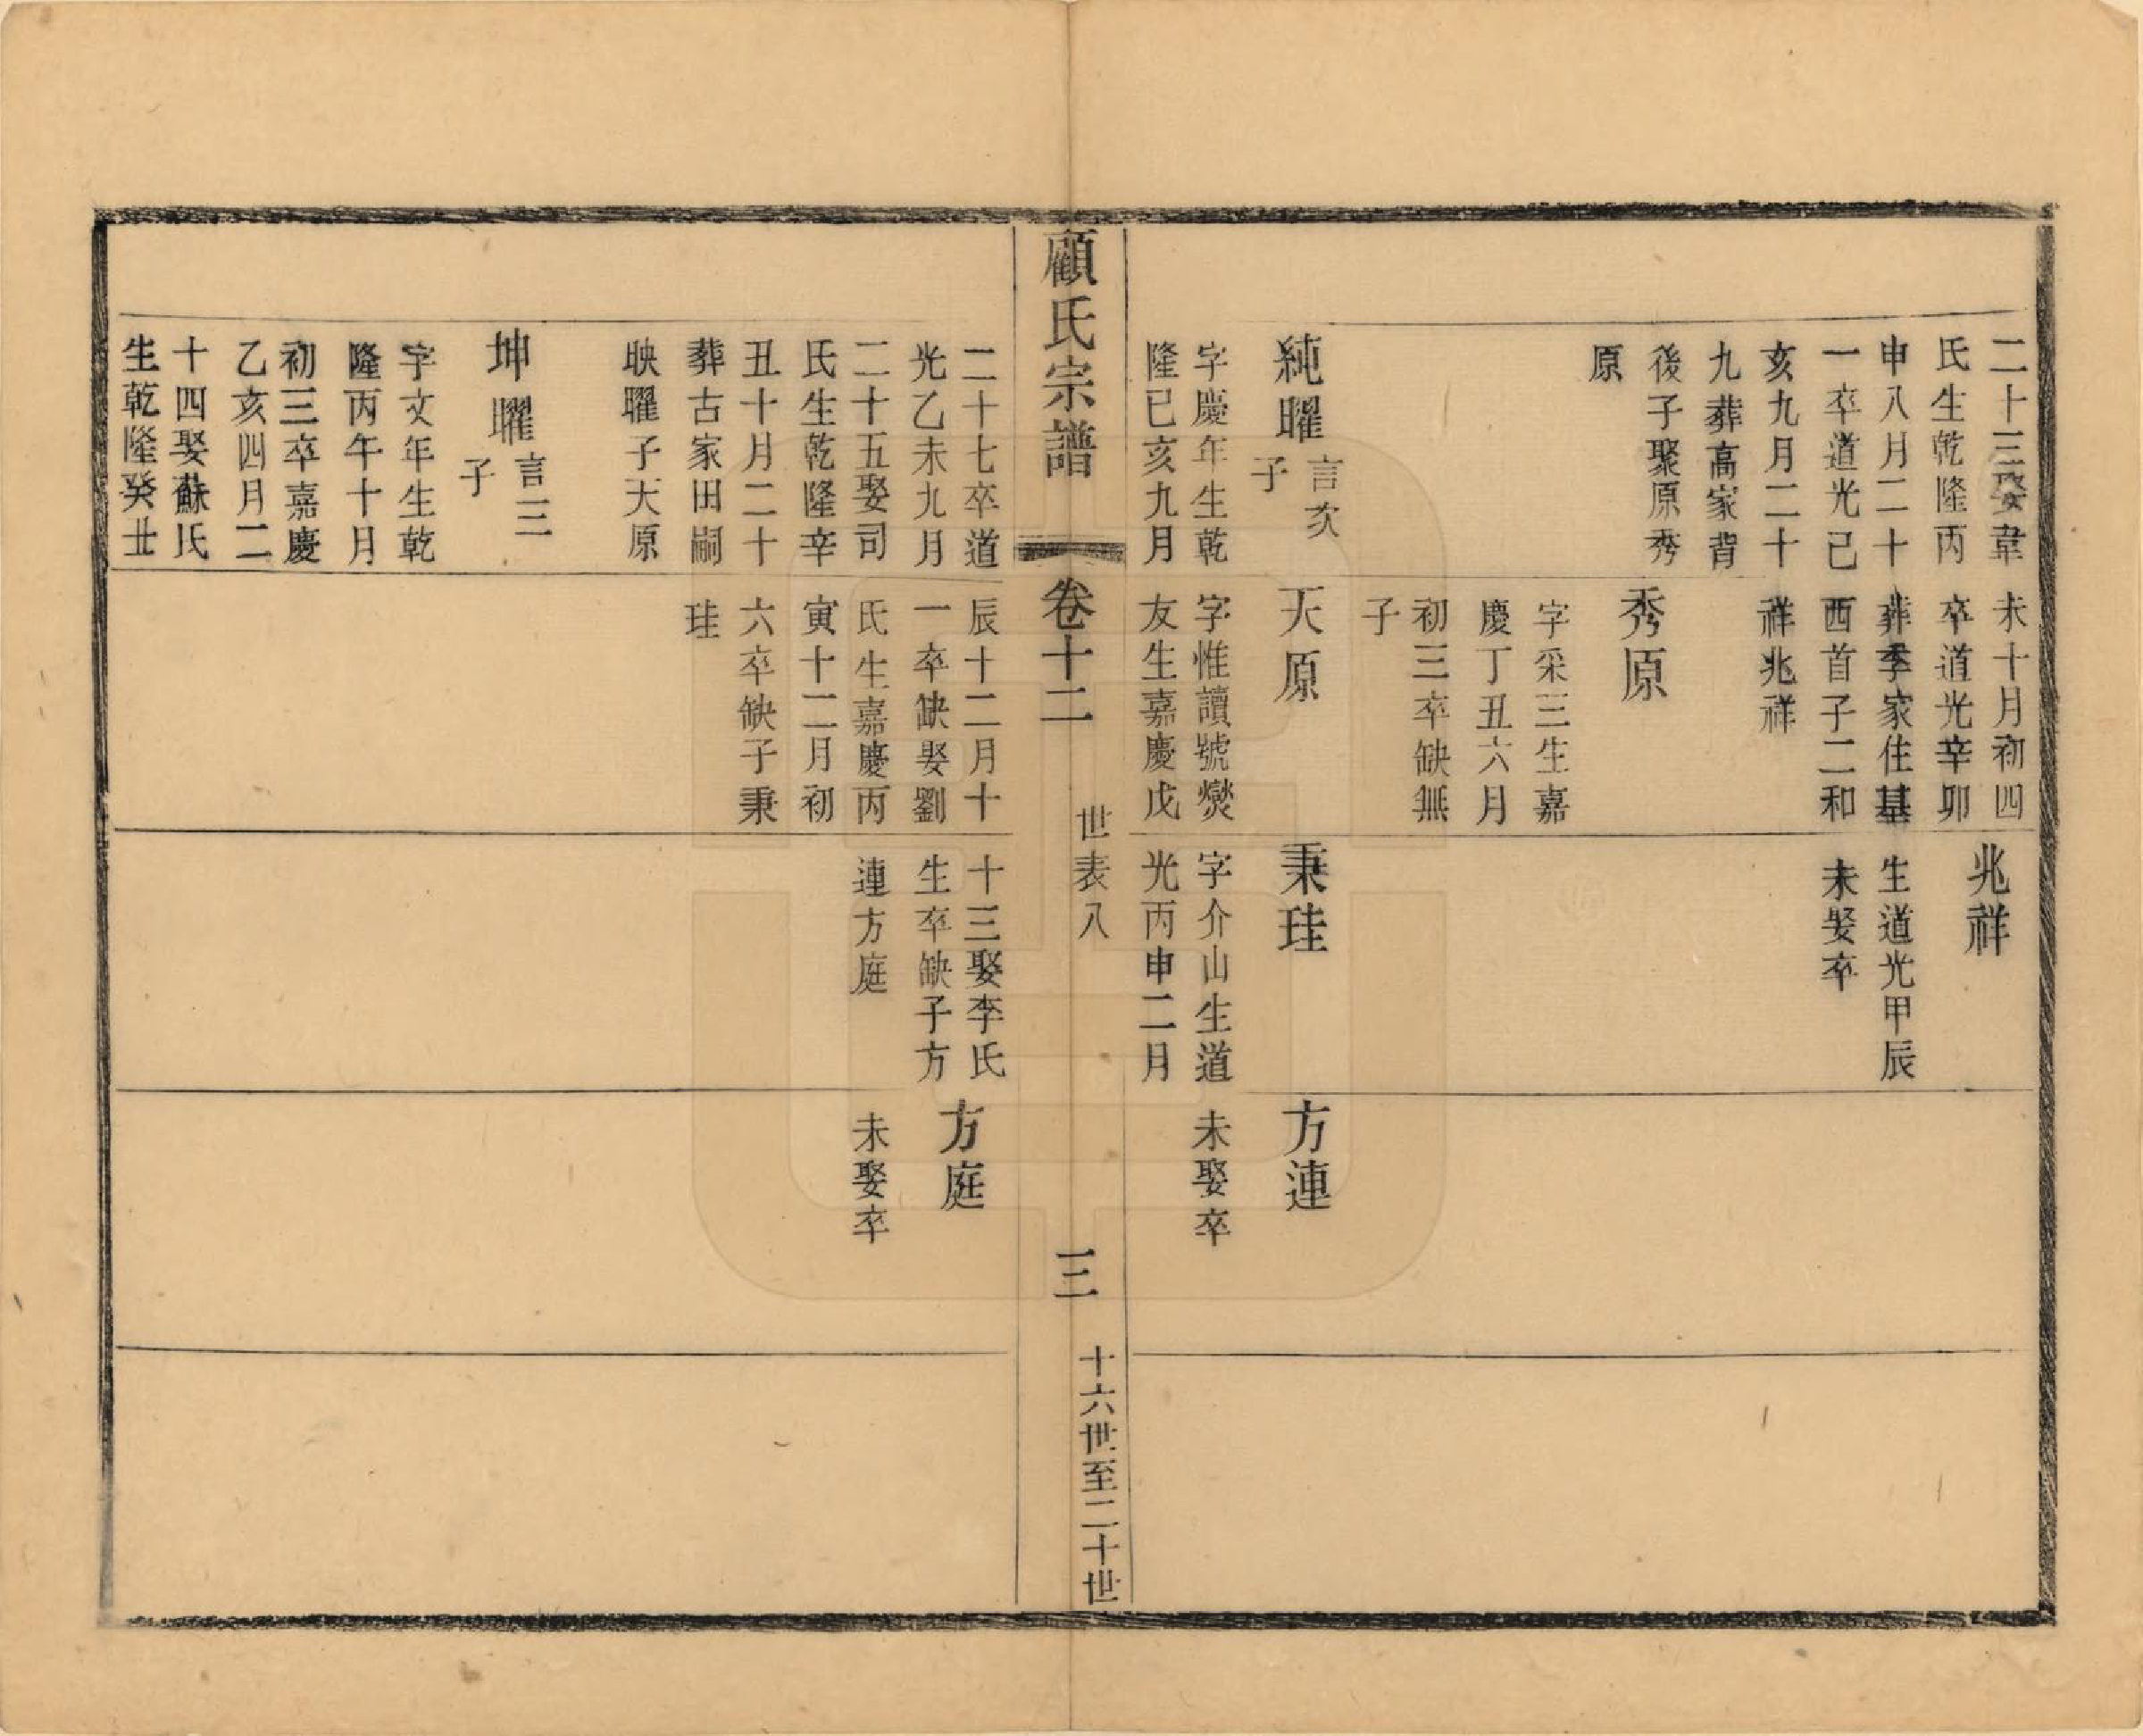 二十三娶韋
氏生乾隆丙
申八月二十
一卒道光己
亥九月二十
九葬高家背
後子聚原秀
原
純曜
言次
子
字慶年生乾
隆已亥九月
未十月初四
卒道光辛卯
葬季家住基
西首子二和
祥兆祥
秀原
字采三生嘉
慶丁丑六月
初三卒缺無
子
天原
字惟讀號爕
友生嘉慶戊
兆祥
生道光甲辰
未娶卒
秉珪
字介山生道
光丙申二月
方連
未娶卒
顧氏宗譜
卷十二
世表八
三
十六世至二十世
二十七卒道
光乙未九月
二十五娶司
氏生乾隆辛
丑十月二十
葬古家田嗣
映曜子大原
坤曜
言三
子
字文年生乾
隆丙午十月
初三卒嘉慶
乙亥四月二
十四娶蘇氏
生乾隆癸丑
辰十二月十
一卒缺娶劉
氏生嘉慶丙
寅十二月初
六卒缺子秉
珪
十三娶李氏
生卒缺子方
連方庭
方庭
未娶卒